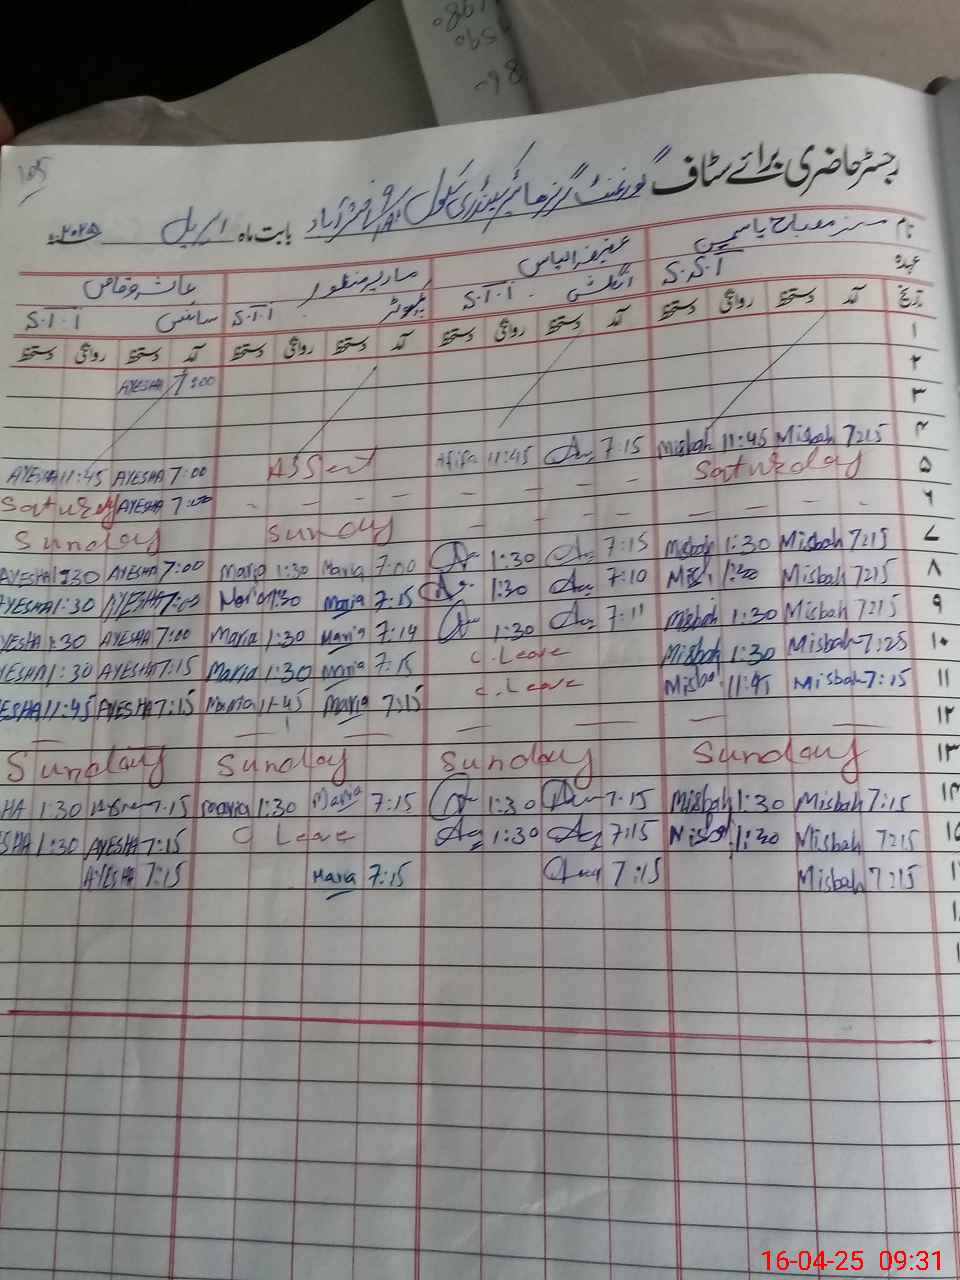 رجسٹر حاضری برائے سٹاف گورنمنٹ گرلز ہائیر سیکنڈری سکول
بابت ماہ اپریل ۲۰۲۵ء
105
نام مسز مصباح یاسمین عفیفہ الیاس ماریہ منظور عائشہ وقاص
عہدہ S.S.T انگلش S.S.T کمپیوٹر S.S.T سائنس
تاریخ آمد دستخط روانگی دستخط آمد دستخط روانگی دستخط آمد دستخط روانگی دستخط آمد دستخط روانگی دستخط
۱
۲ AYESHA 7:00
۳
۴ AYESHA 11:45 AYESHA 7:00 Absent Afifa 11:45 7:15 Misbah 11:45 Misbah 7:15
۵ Saturday AYESHA 7:00 - - - - - - - - Saturday
۶ Sunday Sunday - - - - - - - -
۷ AYESHA 1:30 AYESHA 7:00 Maria 1:30 Maria 7:00 1:30 7:15 Misbah 1:30 Misbah 7:15
۸ AYESHA 1:30 AYESHA 7:00 Maria 1:30 Maria 7:15 1:30 7:10 Misbah 1:30 Misbah 7:15
۹ AYESHA 1:30 AYESHA 7:00 Maria 1:30 Maria 7:14 1:30 7:11 Misbah 1:30 Misbah 7:15
۱۰ AYESHA 1:30 AYESHA 7:15 Maria 1:30 Maria 7:15 C. Leave Misbah 1:30 Misbah 7:25
۱۱ ESHA 11:45 AYESHA 7:15 Maria 11:45 Maria 7:15 C. Leave Misbah 11:45 Misbah 7:15
۱۲
۱۳ Sunday Sunday Sunday Sunday
HA 1:30 7:15 Maria 1:30 Maria 7:15 1:30 7:15 Misbah 1:30 Misbah 7:15
SHA 1:30 AYESHA 7:15 C Leave 1:30 7:15 Misbah 1:30 Misbah 7:15
AYESHA 7:15 Maria 7:15 7:15 Misbah 7:15
16-04-25 09:31